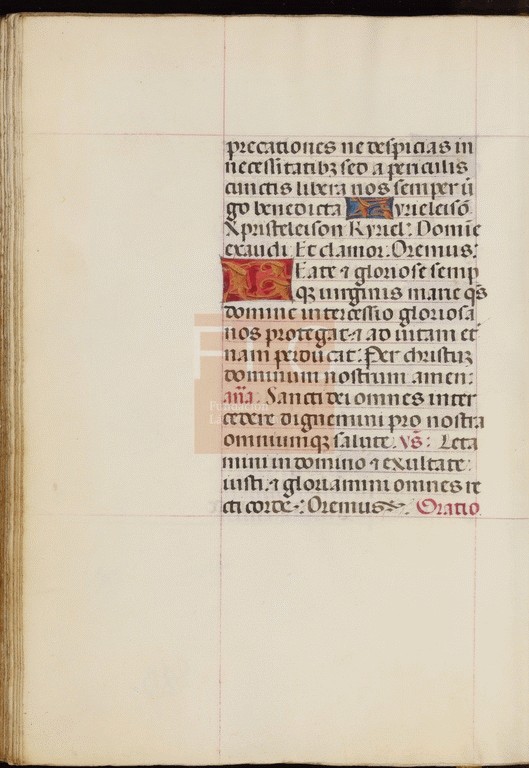 precationes ne despicias in
necessitatibꝫ sed a periculis
cunctis libera nos semper uir
go benedicta Kyrieleisō
Xpristeleison Kyriel: Domie
exaudi Et clamor: Oremus:
BEate ⁊ gloriose semp
qꝫ uirginis marie qs̄
domine intercessio gloriosa
nos protegat ⁊ ad uitam et
nam perducat: Per christuꝫ
dominum nostrum amen:
an̄a. Sancti dei omnes inter
cedere dignemini pro nostra
omniumqꝫ salute. vs̄: Leta
mini in domino ⁊ exultate
iusti. ⁊ gloriamini omnes re
cti corde: Oremus. Oratio
Fundación